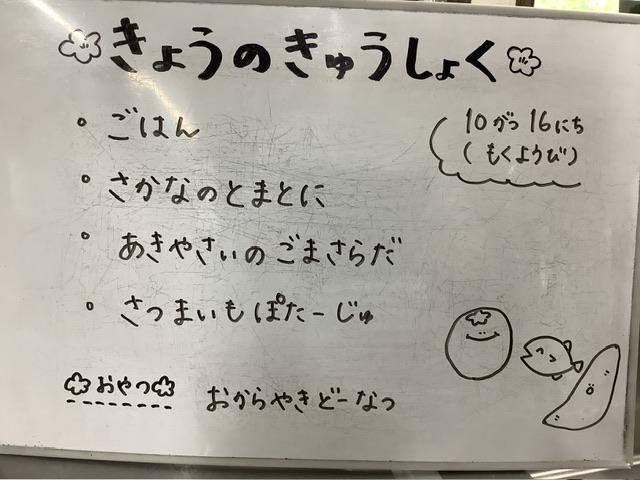 きょうのきゅうしょく
10がつ16にち
(もくようび)
・ごはん
・さかなのとまとに
・あきやさいのごまさらだ
・さつまいもぽたーじゅ
おやつ おからやきどーなつ